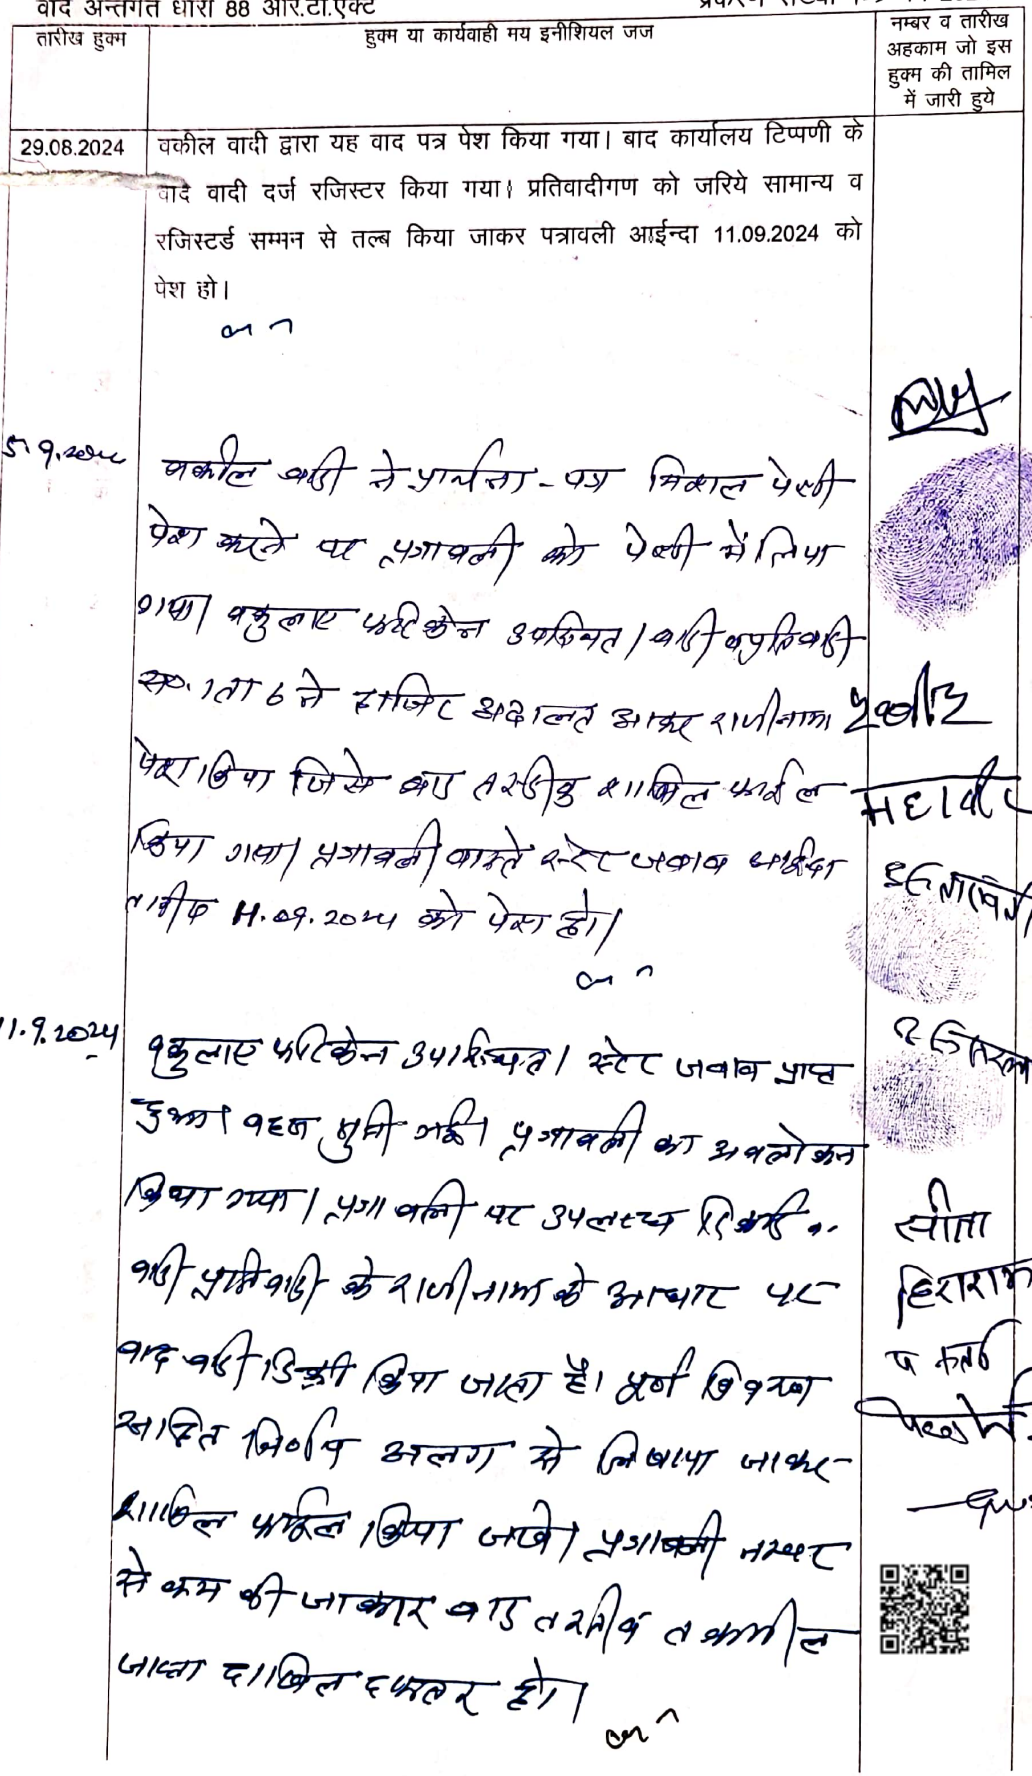 वाद अन्तर्गत धारा 88 आर.टी.एक्ट
तारीख हुक्म
हुक्म या कार्यवाही मय इनीशियल जज
नम्बर व तारीख
अहकाम जो इस
हुक्म की तामिल
में जारी हुये
29.08.2024
वकील वादी द्वारा यह वाद पत्र पेश किया गया। बाद कार्यालय टिप्पणी के
वाद वादी दर्ज रजिस्टर किया गया। प्रतिवादीगण को जरिये सामान्य व
रजिस्टर्ड सम्मन से तल्ब किया जाकर पत्रावली आईन्दा 11.09.2024 को
पेश हो।
5.9.2024
वकील वादी ने प्रार्थना-पत्र मिशल पेशी
पेश करने पर पत्रावली को पेशी में लिया
गया। वकुलाए फरिकेन उपस्थित। वादी व प्रतिवादी
स०. 1 ता 6 ने हाजिर अदालत आकर राजीनामा
पेश किया जिसे बाद तस्दीक शामिल फाईल
किया गया। पत्रावली वास्ते स्टे जवाब आईन्दा
तारीख 11.09.2024 को पेश हो।
महावीर
11.9.2024
वकुलाए फरिकेन उपस्थित। स्टे जवाब प्राप्त
हुआ। बहस सुनी गई। पत्रावली का अवलोकन
किया गया। पत्रावली पर उपलब्ध रिकार्ड
वादी प्रतिवादी के राजीनामा के आधार पर
वाद वादी डिक्री किया जाता है। पूर्ण विवरण
सहित निर्णय अलग से लिखाया जाकर
शामिल फाईल किया जावे। पत्रावली नम्बर
से कम की जाकर बाद तरतीब तकमील
जाब्ता दाखिल दफ्तर हो।
सीता
हिराराम